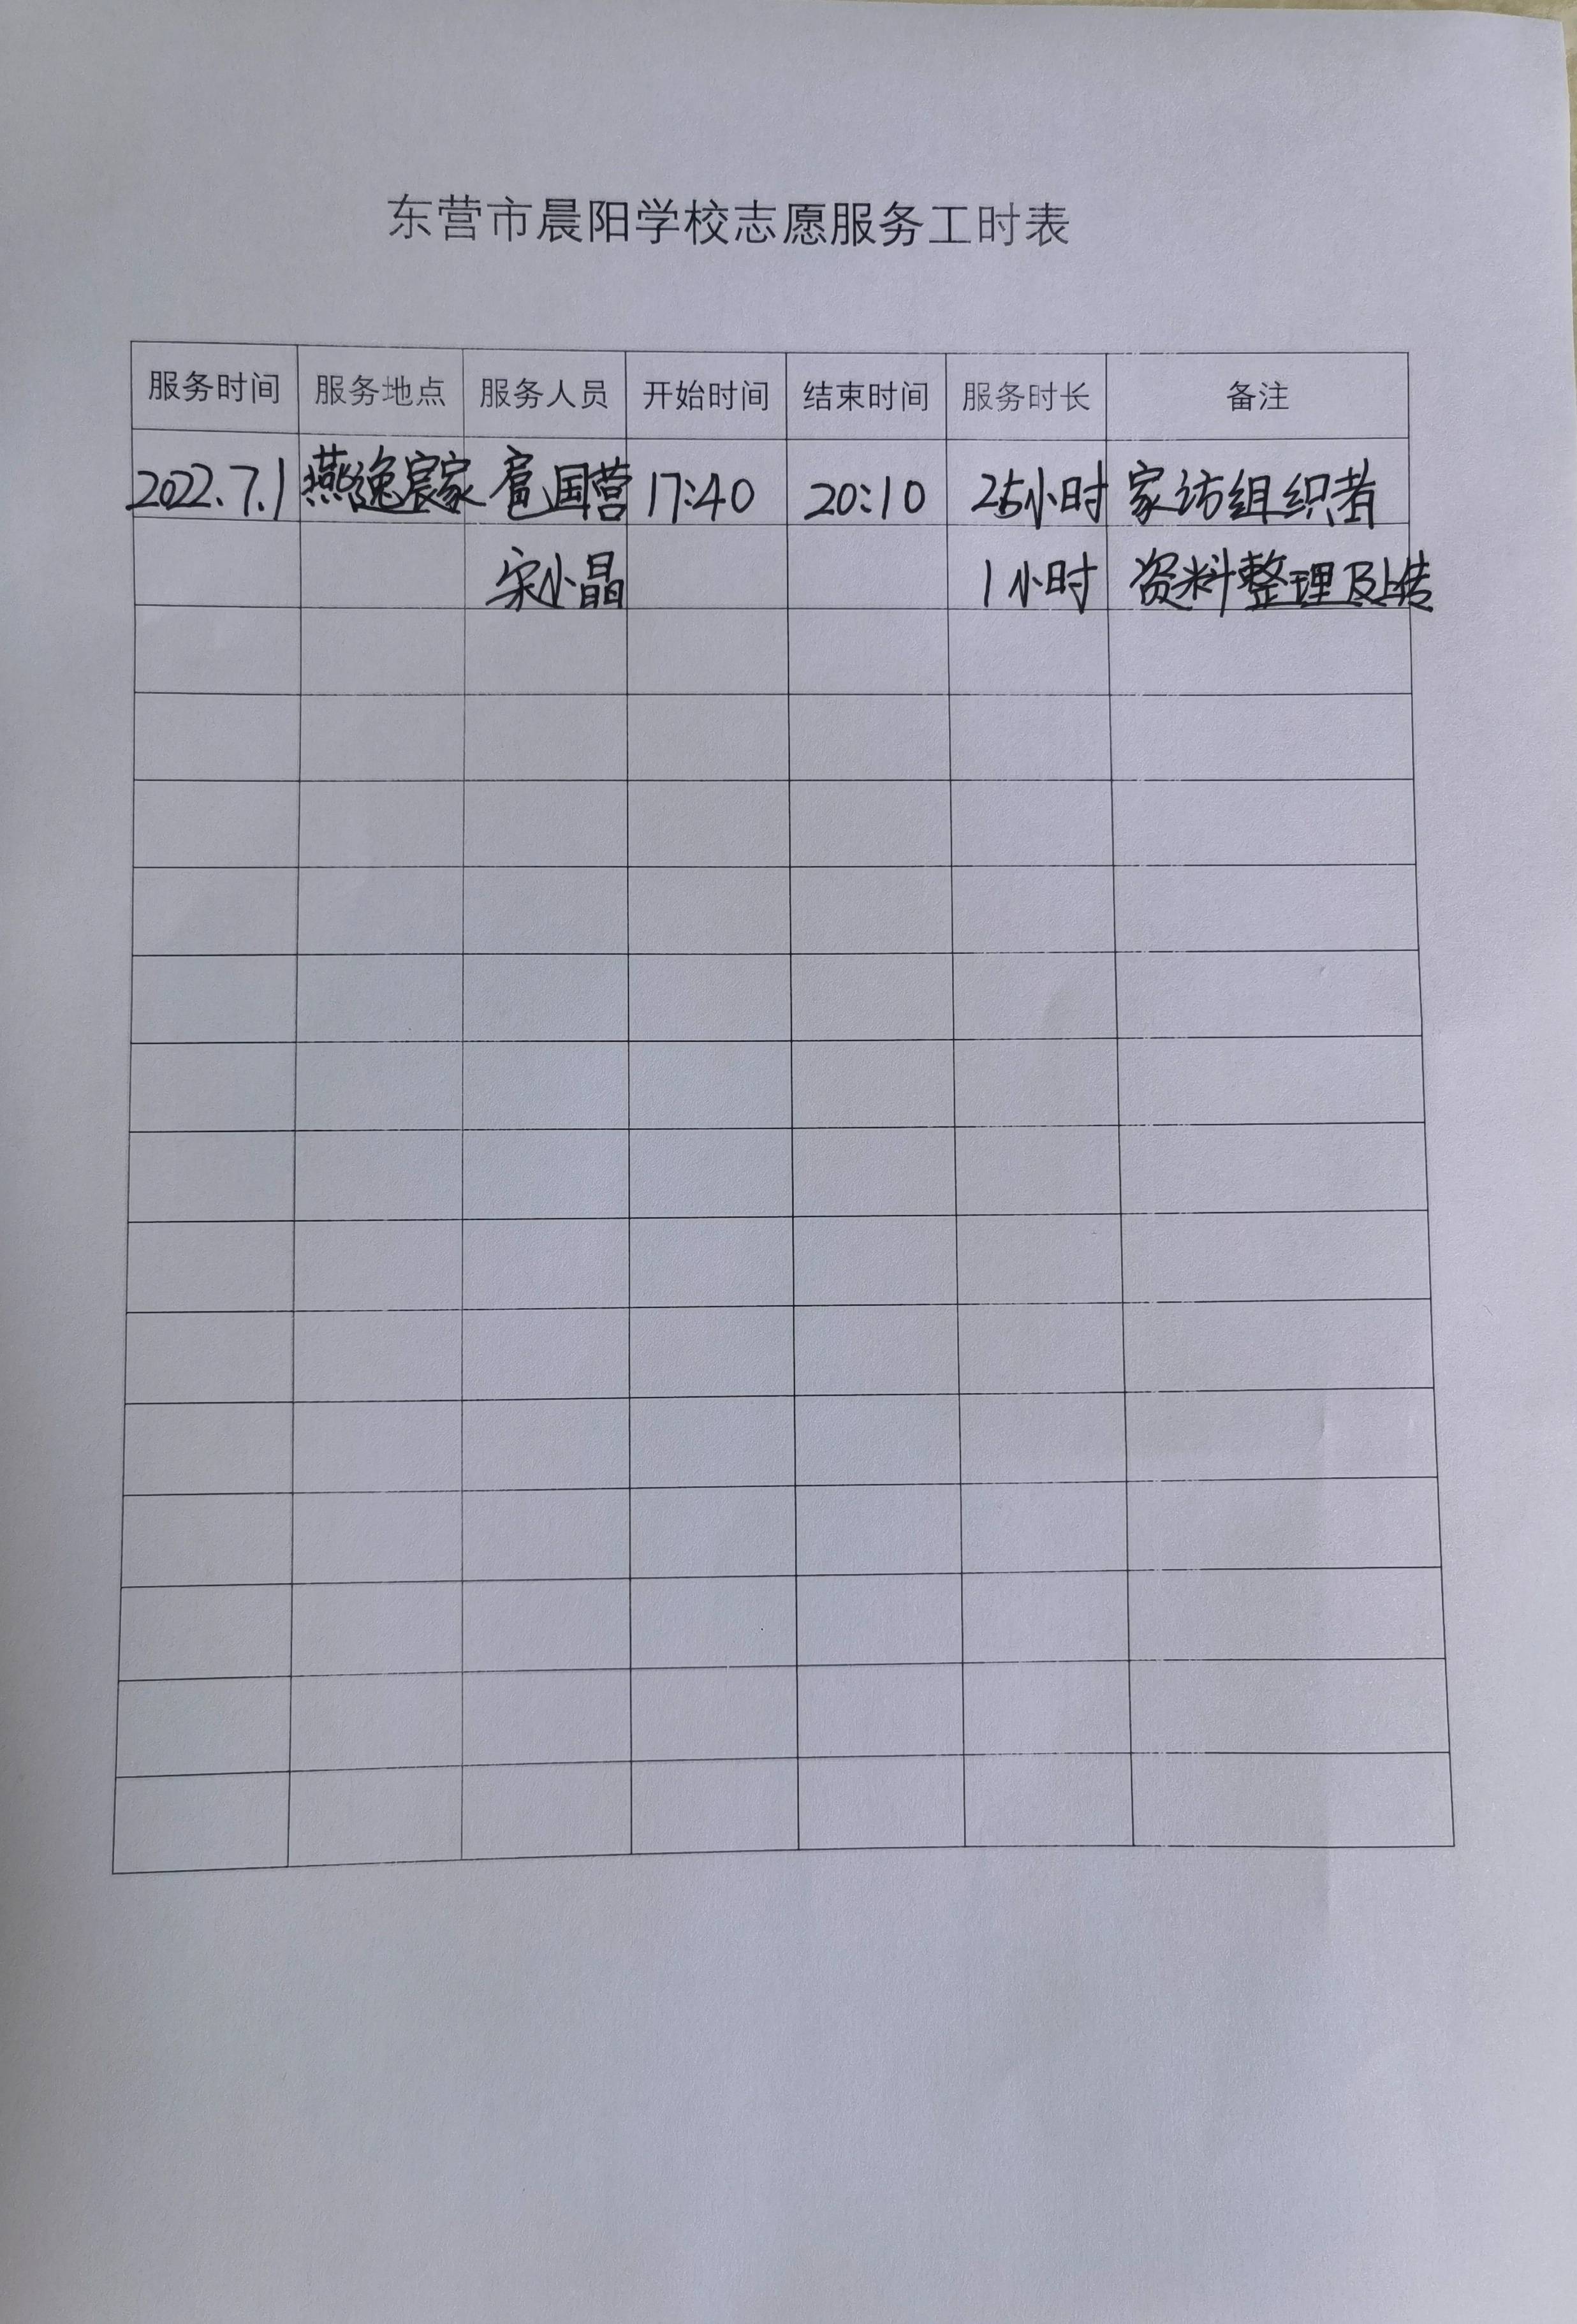 东营市晨阳学校志愿服务工时表
服务时间 服务地点 服务人员 开始时间 结束时间 服务时长 备注
2022.7.1 燕逸宸家 扈国营 17:40 20:10 2.5小时 家访组织者
宋小晶 1小时 资料整理及上传